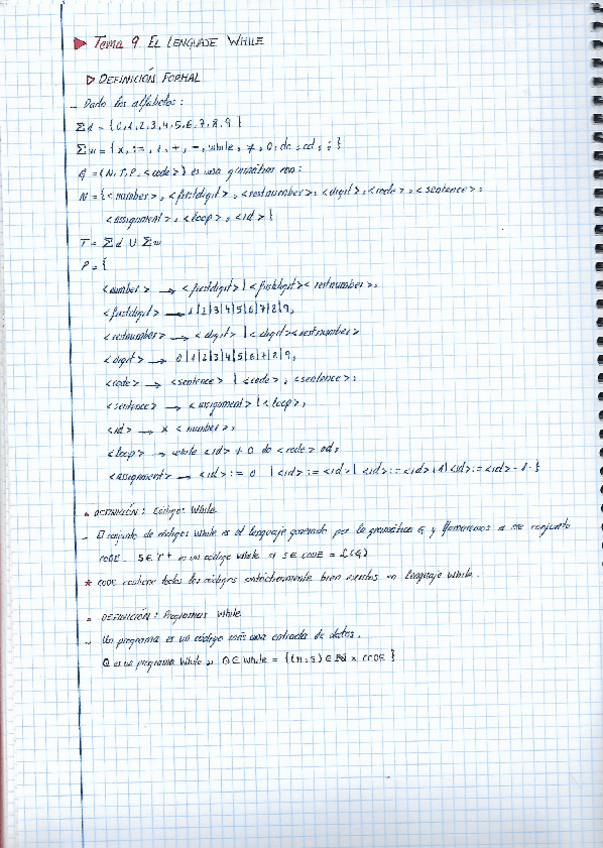 Tema 9. EL LENGUAJE WHILE
DEFINICIÓN FORMAL
- Dado los alfabetos:
Σd = {0,1,2,3,4,5,6,7,8,9}
Σw = {x, :=, +, -, while, ≠, 0, do, od, ;}
G = (N, T, P, <code>) es una gramática con:
N = {<number>, <firstdigit>, <restnumber>, <digit>, <code>, <sentence>,
<assignment>, <loop>, <id>}
T = Σd ∪ Σw
P = {
<number> → <firstdigit> | <firstdigit><restnumber>,
<firstdigit> → 1|2|3|4|5|6|7|8|9,
<restnumber> → <digit> | <digit><restnumber>
<digit> → 0|1|2|3|4|5|6|7|8|9,
<code> → <sentence> | <code>; <sentence>,
<sentence> → <assignment> | <loop>,
<id> → x <number>,
<loop> → while <id> ≠ 0 do <code> od,
<assignment> → <id> := 0 | <id> := <id> | <id> := <id> + 1 | <id> := <id> - 1 }
DEFINICIÓN: Códigos While
- El conjunto de códigos While es el lenguaje generado por la gramática G y llamaremos a ese conjunto
CODE. S ∈ T* es un código While si S ∈ CODE = L(G)
* CODE contiene todos los códigos sintácticamente bien escritos en lenguaje While.
DEFINICIÓN: Programas While
- Un programa es un código más una entrada de datos.
Q es un programa While si Q ∈ While = {(n, s) ∈ N × CODE}